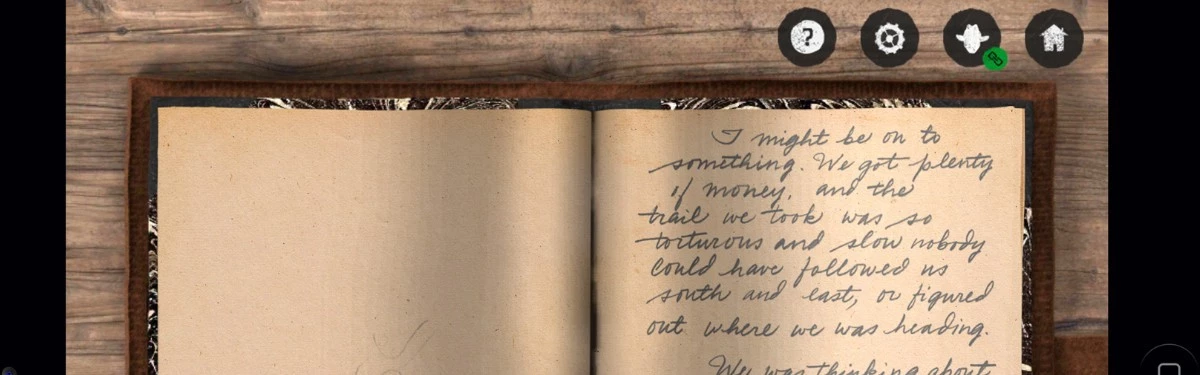 I might be on to
something. We got plenty
of money, and the
trail we took was so
torturous and slow nobody
could have followed us
south and east, or figured
out where we was heading.
We was thinking about